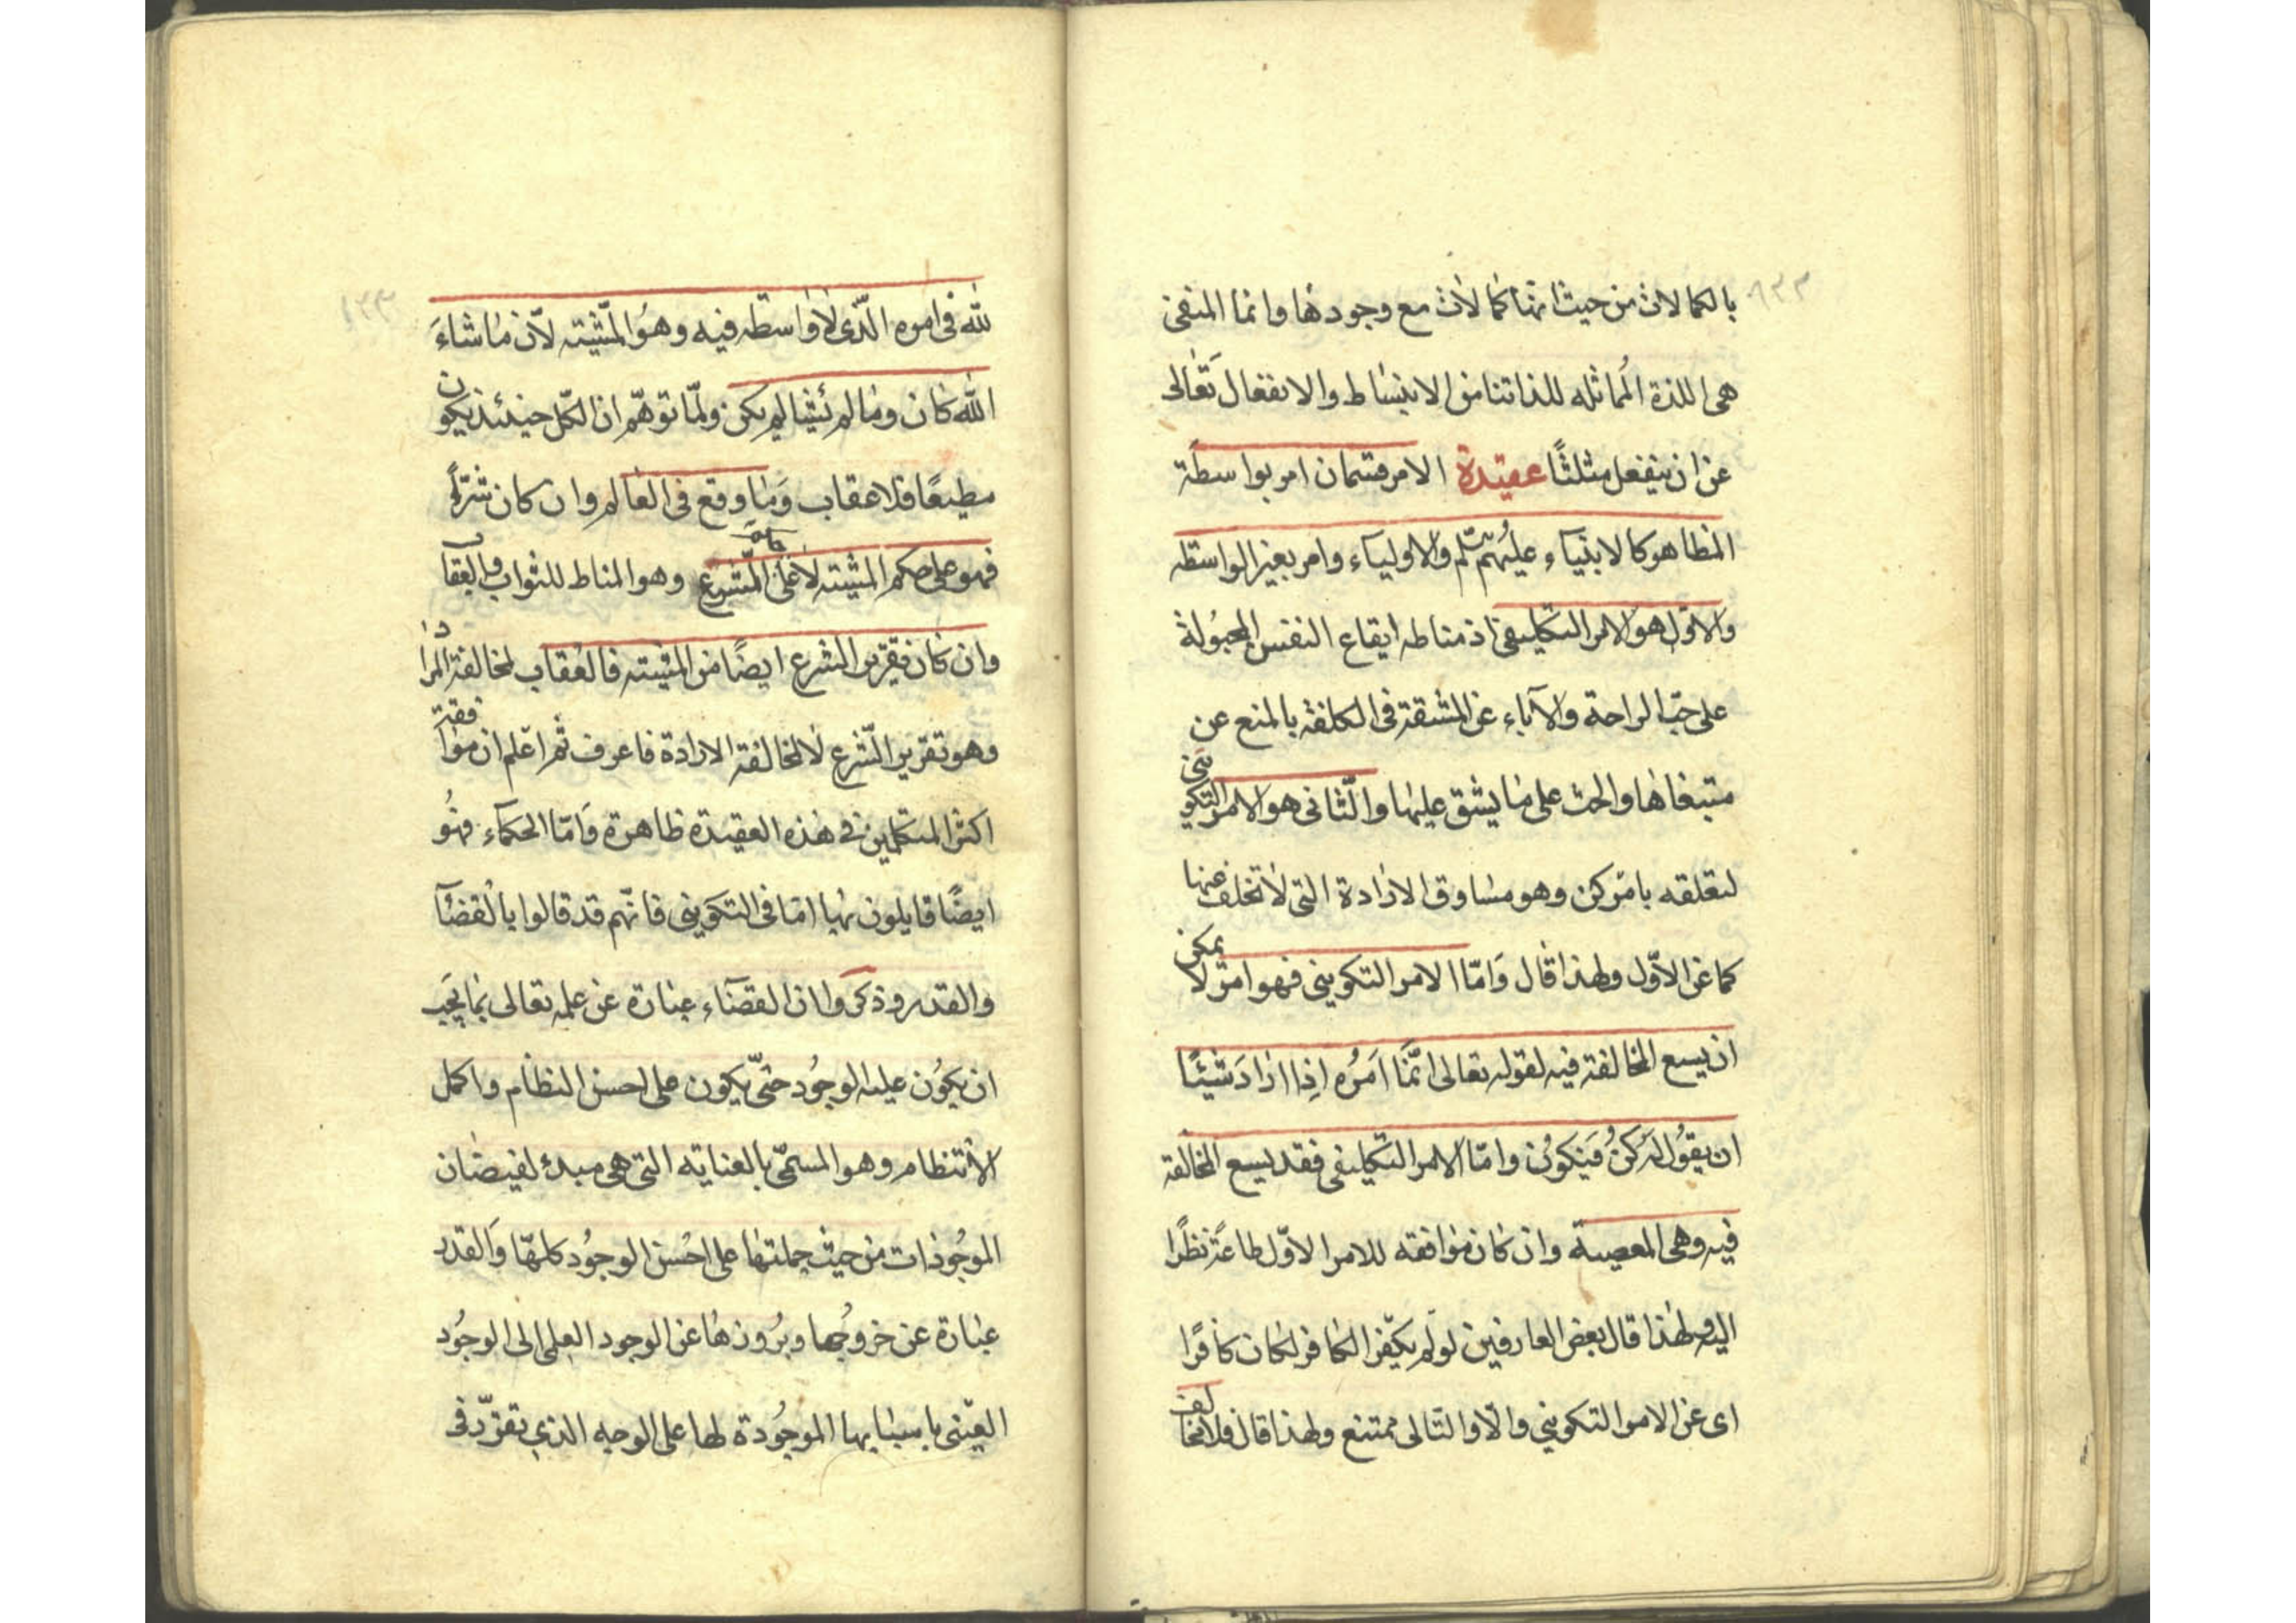 بالكمالات من حيث انها كمالات مع وجودها وانما المنفى
هى اللذة المماثلة للذاتنا من الانبساط والانفعال تعالى
عن ان ينفعل مثلثًا عقيدة الامر قسمان امر بواسطة
المظاهر كالانبياء عليهم والاولياء وامر بغير الواسطه
والاوّل هو الامر التكليفى اذ مناطه ايقاع النفس المجبُولة
على حبّ الراحة والآباء عن المشقة فى الكلفة بالمنع عن
مبتغاها والحث على ما يشق عليها والثّانى هو الامر التكوينى
لتعلقه بامر كن وهو مساوق الارادة التى لا تخلف عنها
كما عن الاوّل ولهذا قال وَامّا الامر التكوينى فهو امرٌ لا يمكن
ان يسع المخالفة فيه لقوله تعالى انّمَا اَمرُه اِذا ارادَ شيئًا
ان يقُول لَه كنُ فيَكوُن وامّا الامر التكليفى فقد يسع المخالفة
فيه وهى المعصية وان كان موافقه للامر الاوّل طاعةً نظرًا
اليه ولهذا قال بعض العارفين لو لم يكفر الكافر لكان كافرًا
اى عن الامر التكوينى والّا والتّالى ممتنع ولهذا قال فلا مخالف
١٣٣
لله فى امره الّذى لا واسطة فيه وهوُ المشّية لانّ ما شاءَ
الله كان وما لم يشا لم يكن ولمّا توهّم ان الكّل حينئذ يكون
مطيعًا فلا عقاب وَما وقع فى العالم وان كان شرّاً
فهو على حكم المشية لا على الشّرع وهو المناط للثواب والعقاب
وان كان تقرير الشرع ايضًا من المشية فالعُقاب لمخالفة المراد
وهو تقرير الشّرع لا لمخالفة الارادة فاعرف ثم اعلم ان موافقة
اكثر المتكلمين فى هذه العقيدة ظاهرة وَامّا الحكمآء فهُو
ايضًا قايلون بها امّا فى التكوينى فانّهم قد قالوا بالقضآ
والقدر وذكروا ان القضآء عبارة عن علمه تعالى بما يجَب
ان يكوُن عليه الوجوُد حتّى يكون على احسن النظام واكمل
الانتظام وهو المسمّى بالعناية التى هى مبدء لفيضان
الموجُودات من حيث جملتها على احُسن الوجوُد كلهّا والقدر
عبارة عن خروجُها وبرُوزها عن الوجود العلمى الى الوجُود
العينى باسبابها الموجُودة لها على الوجه الذى تقرّر فى